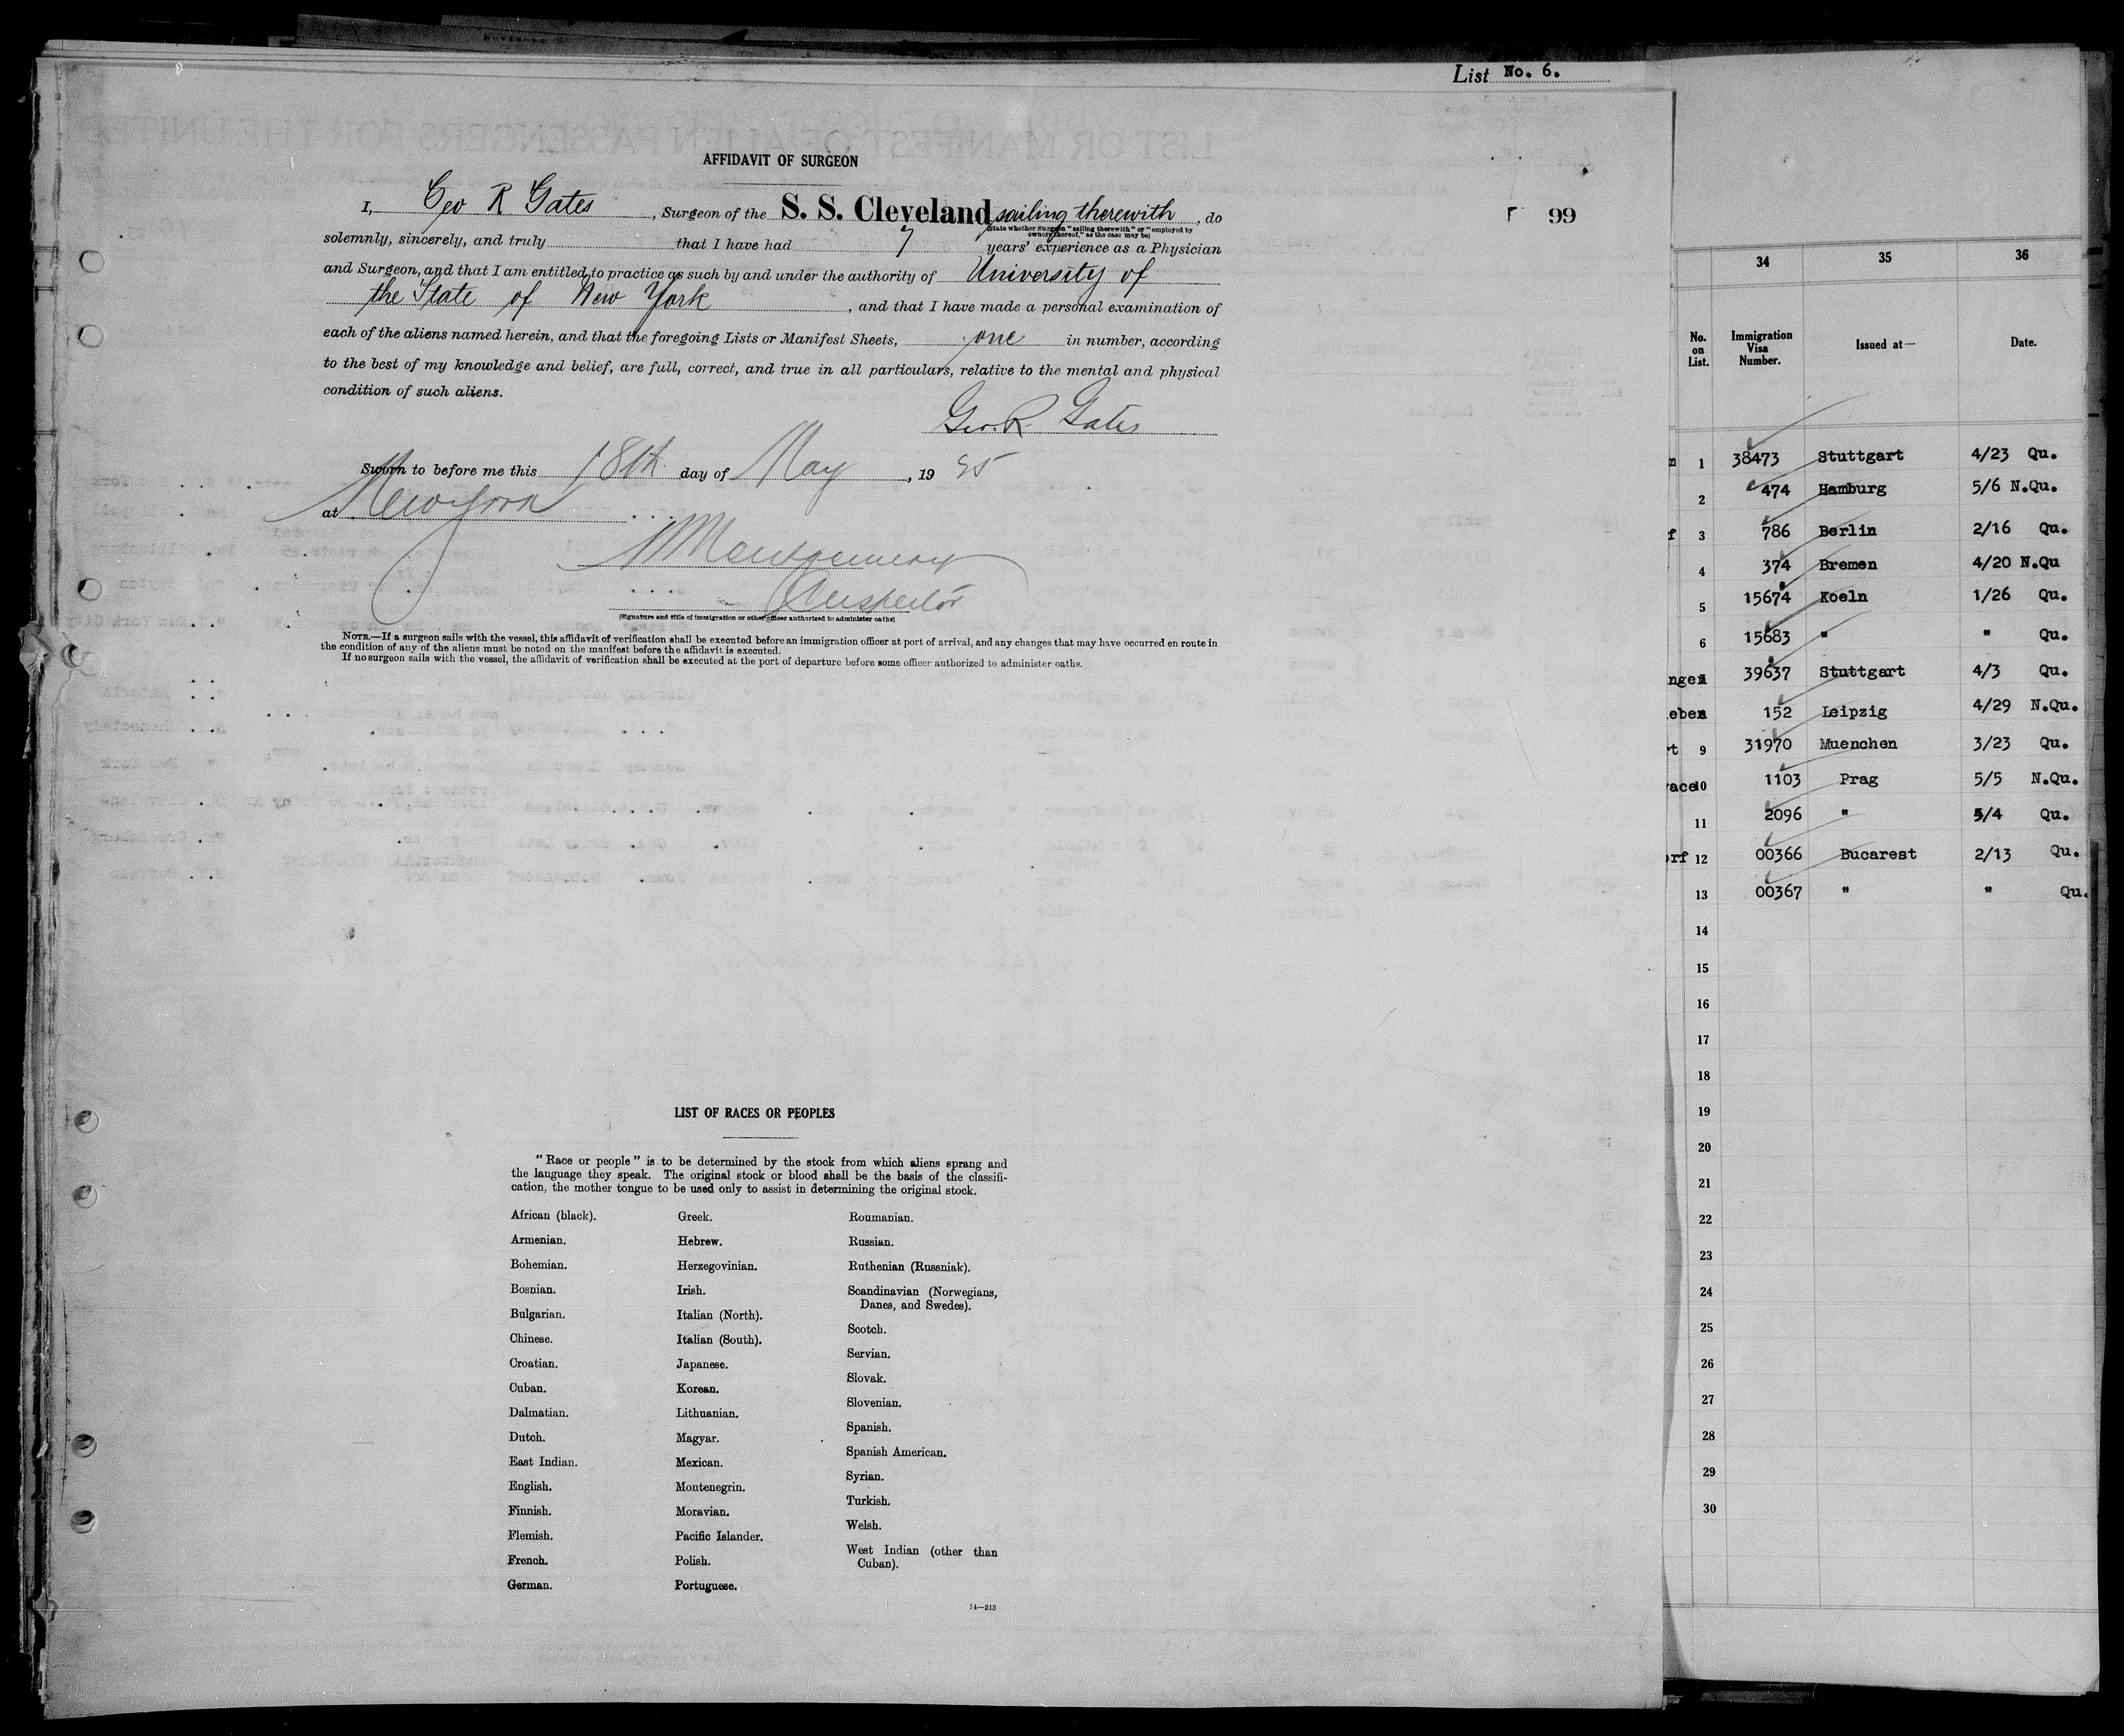 List No. 6.
AFFIDAVIT OF SURGEON
I, Geo R Gates, Surgeon of the S. S. Cleveland sailing therewith, do
(State whether Surgeon "sailing therewith" or "employed by
owners thereof," as the case may be)
solemnly, sincerely, and truly that I have had 7 years' experience as a Physician
and Surgeon, and that I am entitled to practice as such by and under the authority of University of
the State of New York, and that I have made a personal examination of
each of the aliens named herein, and that the foregoing Lists or Manifest Sheets, one in number, according
to the best of my knowledge and belief, are full, correct, and true in all particulars, relative to the mental and physical
condition of such aliens.
Geo. R. Gates
Sworn to before me this 18th day of May, 1925
at New York
Montgomery
Inspector
(Signature and title of immigration or other officer authorized to administer oaths)
NOTE.—If a surgeon sails with the vessel, this affidavit of verification shall be executed before an immigration officer at port of arrival, and any changes that may have occurred en route in
the condition of any of the aliens must be noted on the manifest before the affidavit is executed.
If no surgeon sails with the vessel, the affidavit of verification shall be executed at the port of departure before some officer authorized to administer oaths.
LIST OF RACES OR PEOPLES
"Race or people" is to be determined by the stock from which aliens sprang and
the language they speak. The original stock or blood shall be the basis of the classifi-
cation, the mother tongue to be used only to assist in determining the original stock.
African (black).
Armenian.
Bohemian.
Bosnian.
Bulgarian.
Chinese.
Croatian.
Cuban.
Dalmatian.
Dutch.
East Indian.
English.
Finnish.
Flemish.
French.
German.
Greek.
Hebrew.
Herzegovinian.
Irish.
Italian (North).
Italian (South).
Japanese.
Korean.
Lithuanian.
Magyar.
Mexican.
Montenegrin.
Moravian.
Pacific Islander.
Polish.
Portuguese.
Roumanian.
Russian.
Ruthenian (Russniak).
Scandinavian (Norwegians,
Danes, and Swedes).
Scotch.
Servian.
Slovak.
Slovenian.
Spanish.
Spanish American.
Syrian.
Turkish.
Welsh.
West Indian (other than
Cuban).
14—213
99
34 35 36
No. on List. Immigration Visa Number. Issued at— Date.
1 38473 Stuttgart 4/23 Qu.
2 474 Hamburg 5/6 N.Qu.
3 786 Berlin 2/16 Qu.
4 374 Bremen 4/20 N.Qu
5 15674 Koeln 1/26 Qu.
6 15683 " " Qu.
39637 Stuttgart 4/3 Qu.
152 Leipzig 4/29 N.Qu.
9 31970 Muenchen 3/23 Qu.
10 1103 Prag 5/5 N.Qu.
11 2096 " 5/4 Qu.
12 00366 Bucarest 2/13 Qu.
13 00367 " " Qu.
14
15
16
17
18
19
20
21
22
23
24
25
26
27
28
29
30